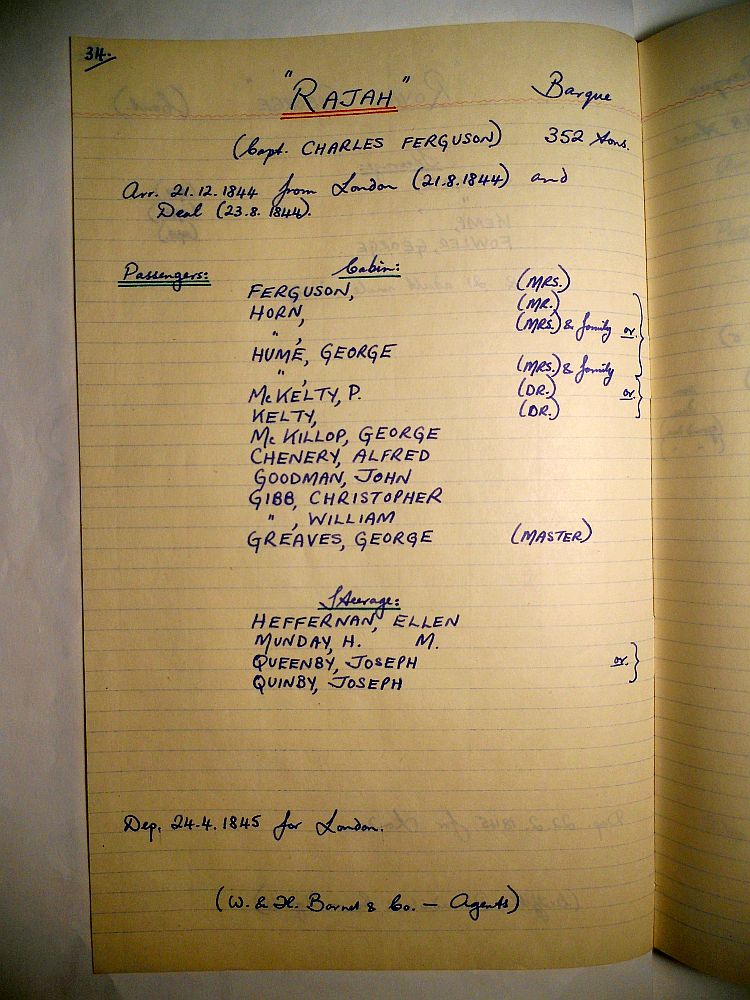 34.
"RAJAH" Barque
(Capt. CHARLES FERGUSON) 352 tons.
Arr. 21.12.1844 from London (21.8.1844) and
Deal (23.8.1844).
Passengers: Cabin:
FERGUSON, (MRS.)
HORN, (MR.)
" , (MRS.) & family or
HUME, GEORGE
" , (MRS.) & family
McKELTY, P. (DR.) or
KELTY, (DR.)
McKILLOP, GEORGE
CHENERY, ALFRED
GOODMAN, JOHN
GIBB, CHRISTOPHER
" , WILLIAM
GREAVES, GEORGE (MASTER)
Steerage:
HEFFERNAN, ELLEN
MUNDAY, H. M.
QUEENBY, JOSEPH or.
QUINBY, JOSEPH
Dep. 24.4.1845 for London.
(W. & H. Barnes & Co. — Agents)